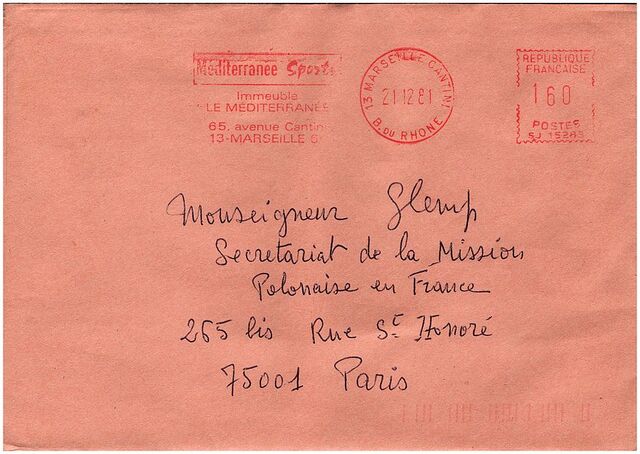 Méditerranée Sports
Immeuble
LE MÉDITERRANÉE
65, avenue Cantini
13-MARSEILLE 6
13 MARSEILLE CANTINI
21 12 81
B. DU RHONE
REPUBLIQUE
FRANCAISE
160
POSTES
SJ 15283
Monseigneur Glemp
Secretariat de la Mission
Polonaise en France
265 bis Rue St Honoré
75001 Paris